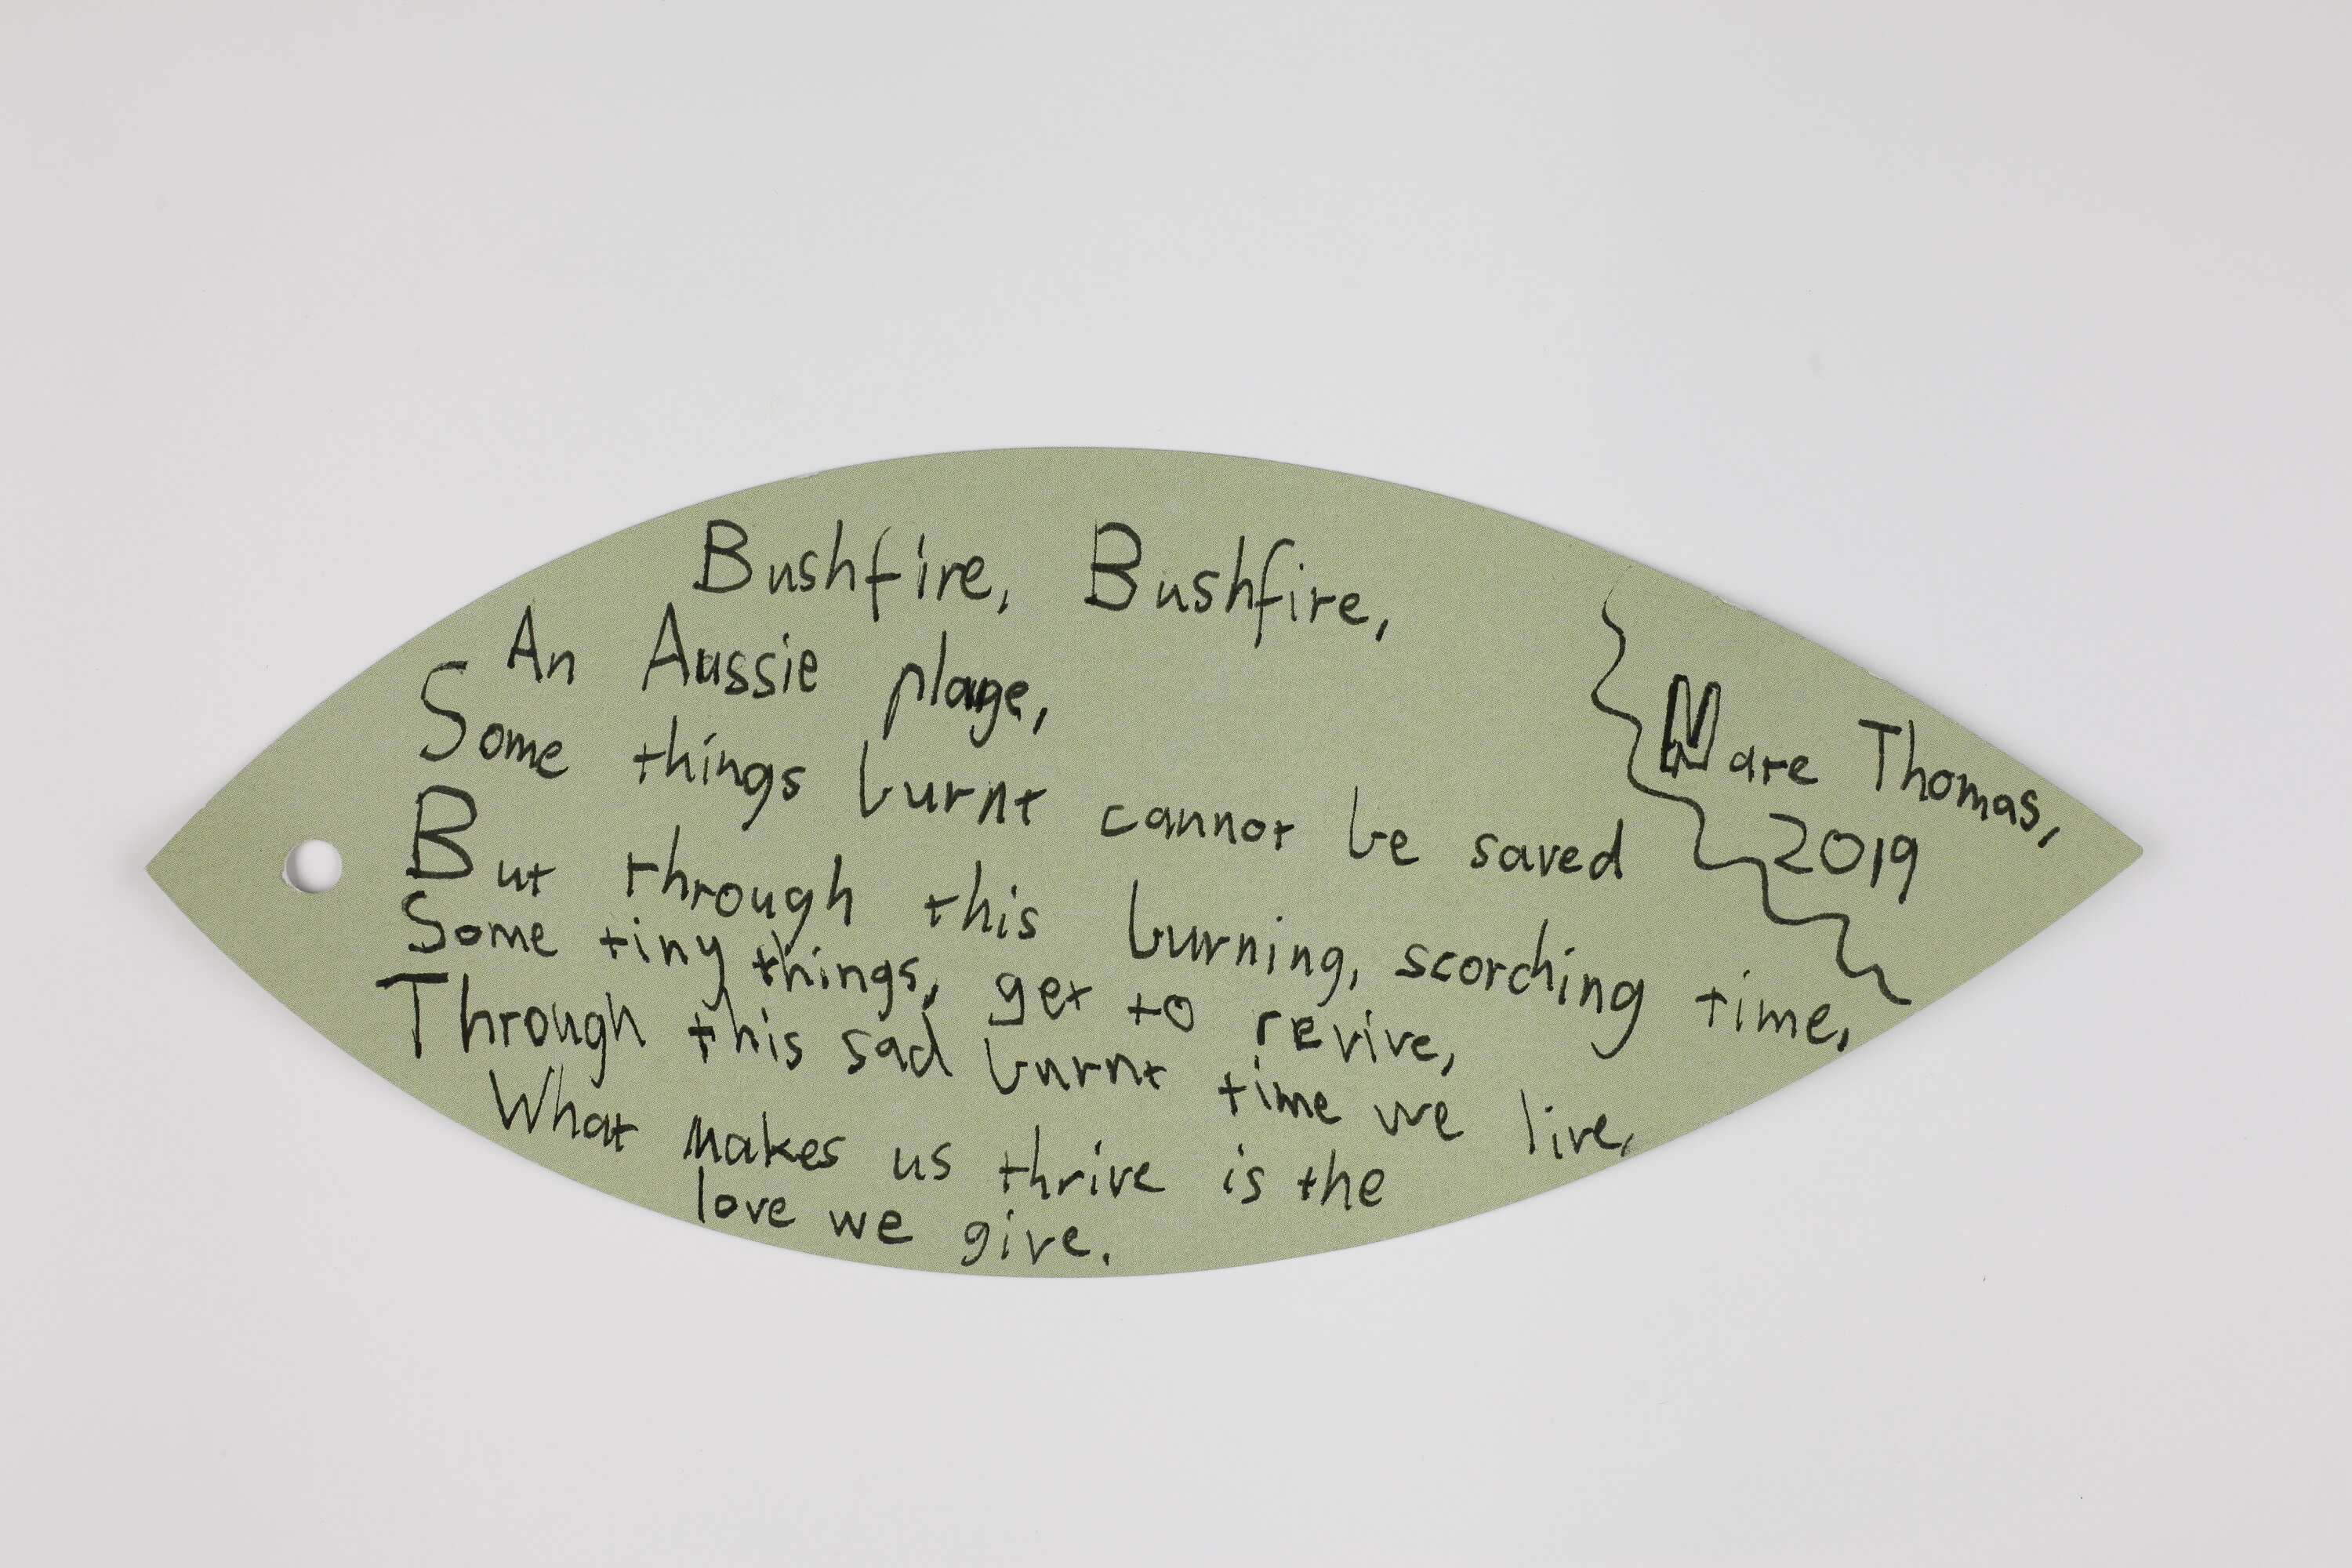 Bushfire, Bushfire,
An Aussie plage,
Some things burnt cannot be saved
But through this burning, scorching time,
Some tiny things, get to revive,
Through this sad burnt time we live,
What makes us thrive is the
love we give.
Thomas,
2019